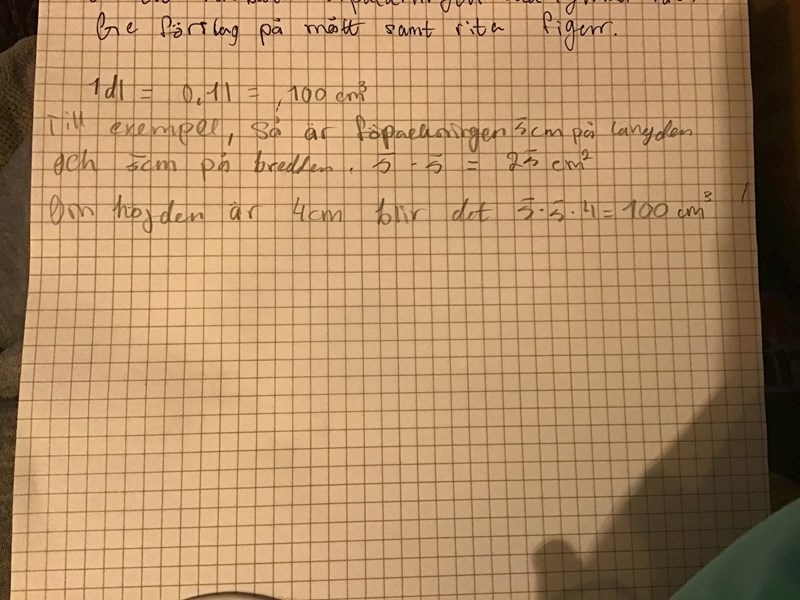 Ge förslag på mått samt rita figurr.
1dl = 0,1l = 100 cm³
Till exempel, så är föpackningen 5cm på langden
och 5cm på bredden. 5 · 5 = 25 cm²
Om höjden är 4cm blir det 5·5·4 = 100 cm³